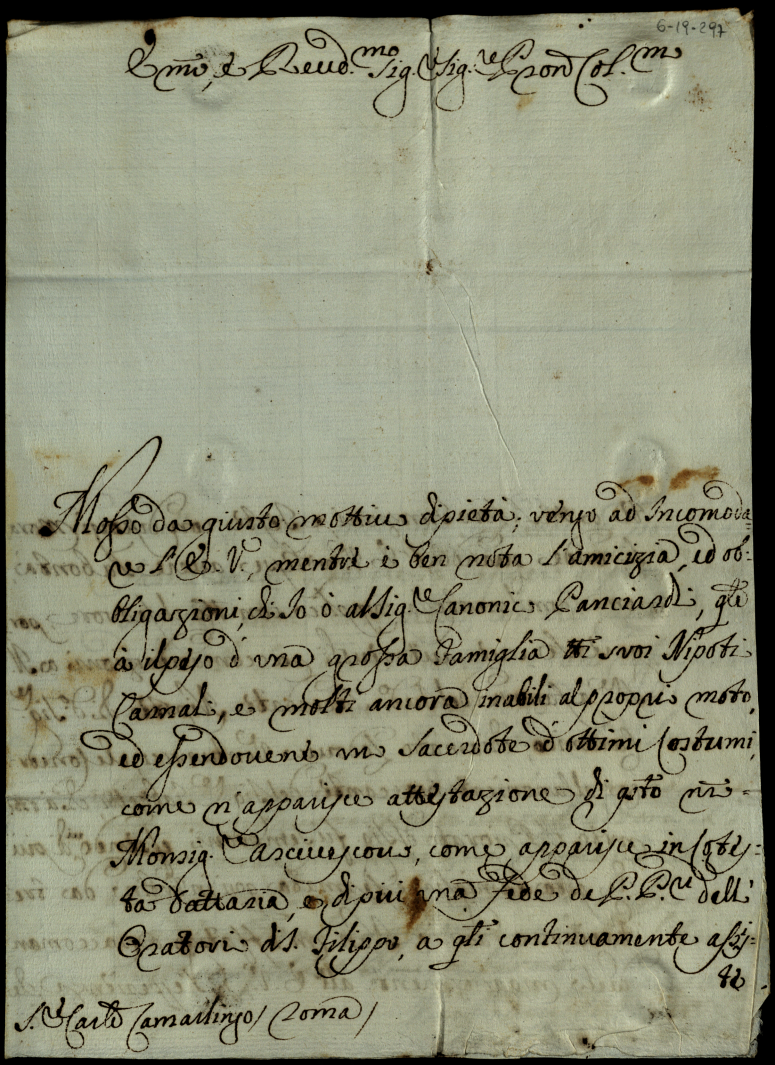 6-19-297
Em̃o, e Reud.mo Sig.e Sig.e Pron̄ Col.m
Mosso da giusto mottiuo di pietà, vengo ad Incomoda=
re l'E. V.a, mentre è ben nota l'amicizia, ed ob=
bligazioni, ch Io ò al Sig.e Canonic Panciardi, qle
à il peso d'una grossa Famiglia tti suoi Nipoti
Carnali, e molti ancora inabili al propri moto,
ed essendouene un Sacerdote d'ottimi Costumi,
come n'apparisce attestazione di qsto ñro
Monsig.e Arciuescouo, come apparisce in Cotes=
ta Dattaria, e di piu una Fede de P. P.i dell'
Oratorio di S. Filippo, a qli continuamente assis=
te
S.e Card Camarlingo / Roma /